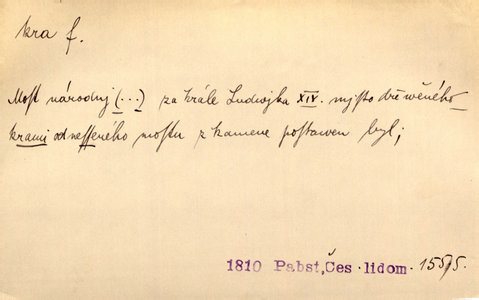 kra f.
Most národnj (...) za krále Ludwjka XIV. mjsto dřewěného
krami odnesseného mostu z kamene postawen byl;
1810 Pabst, Čes. lidom. 155/5.